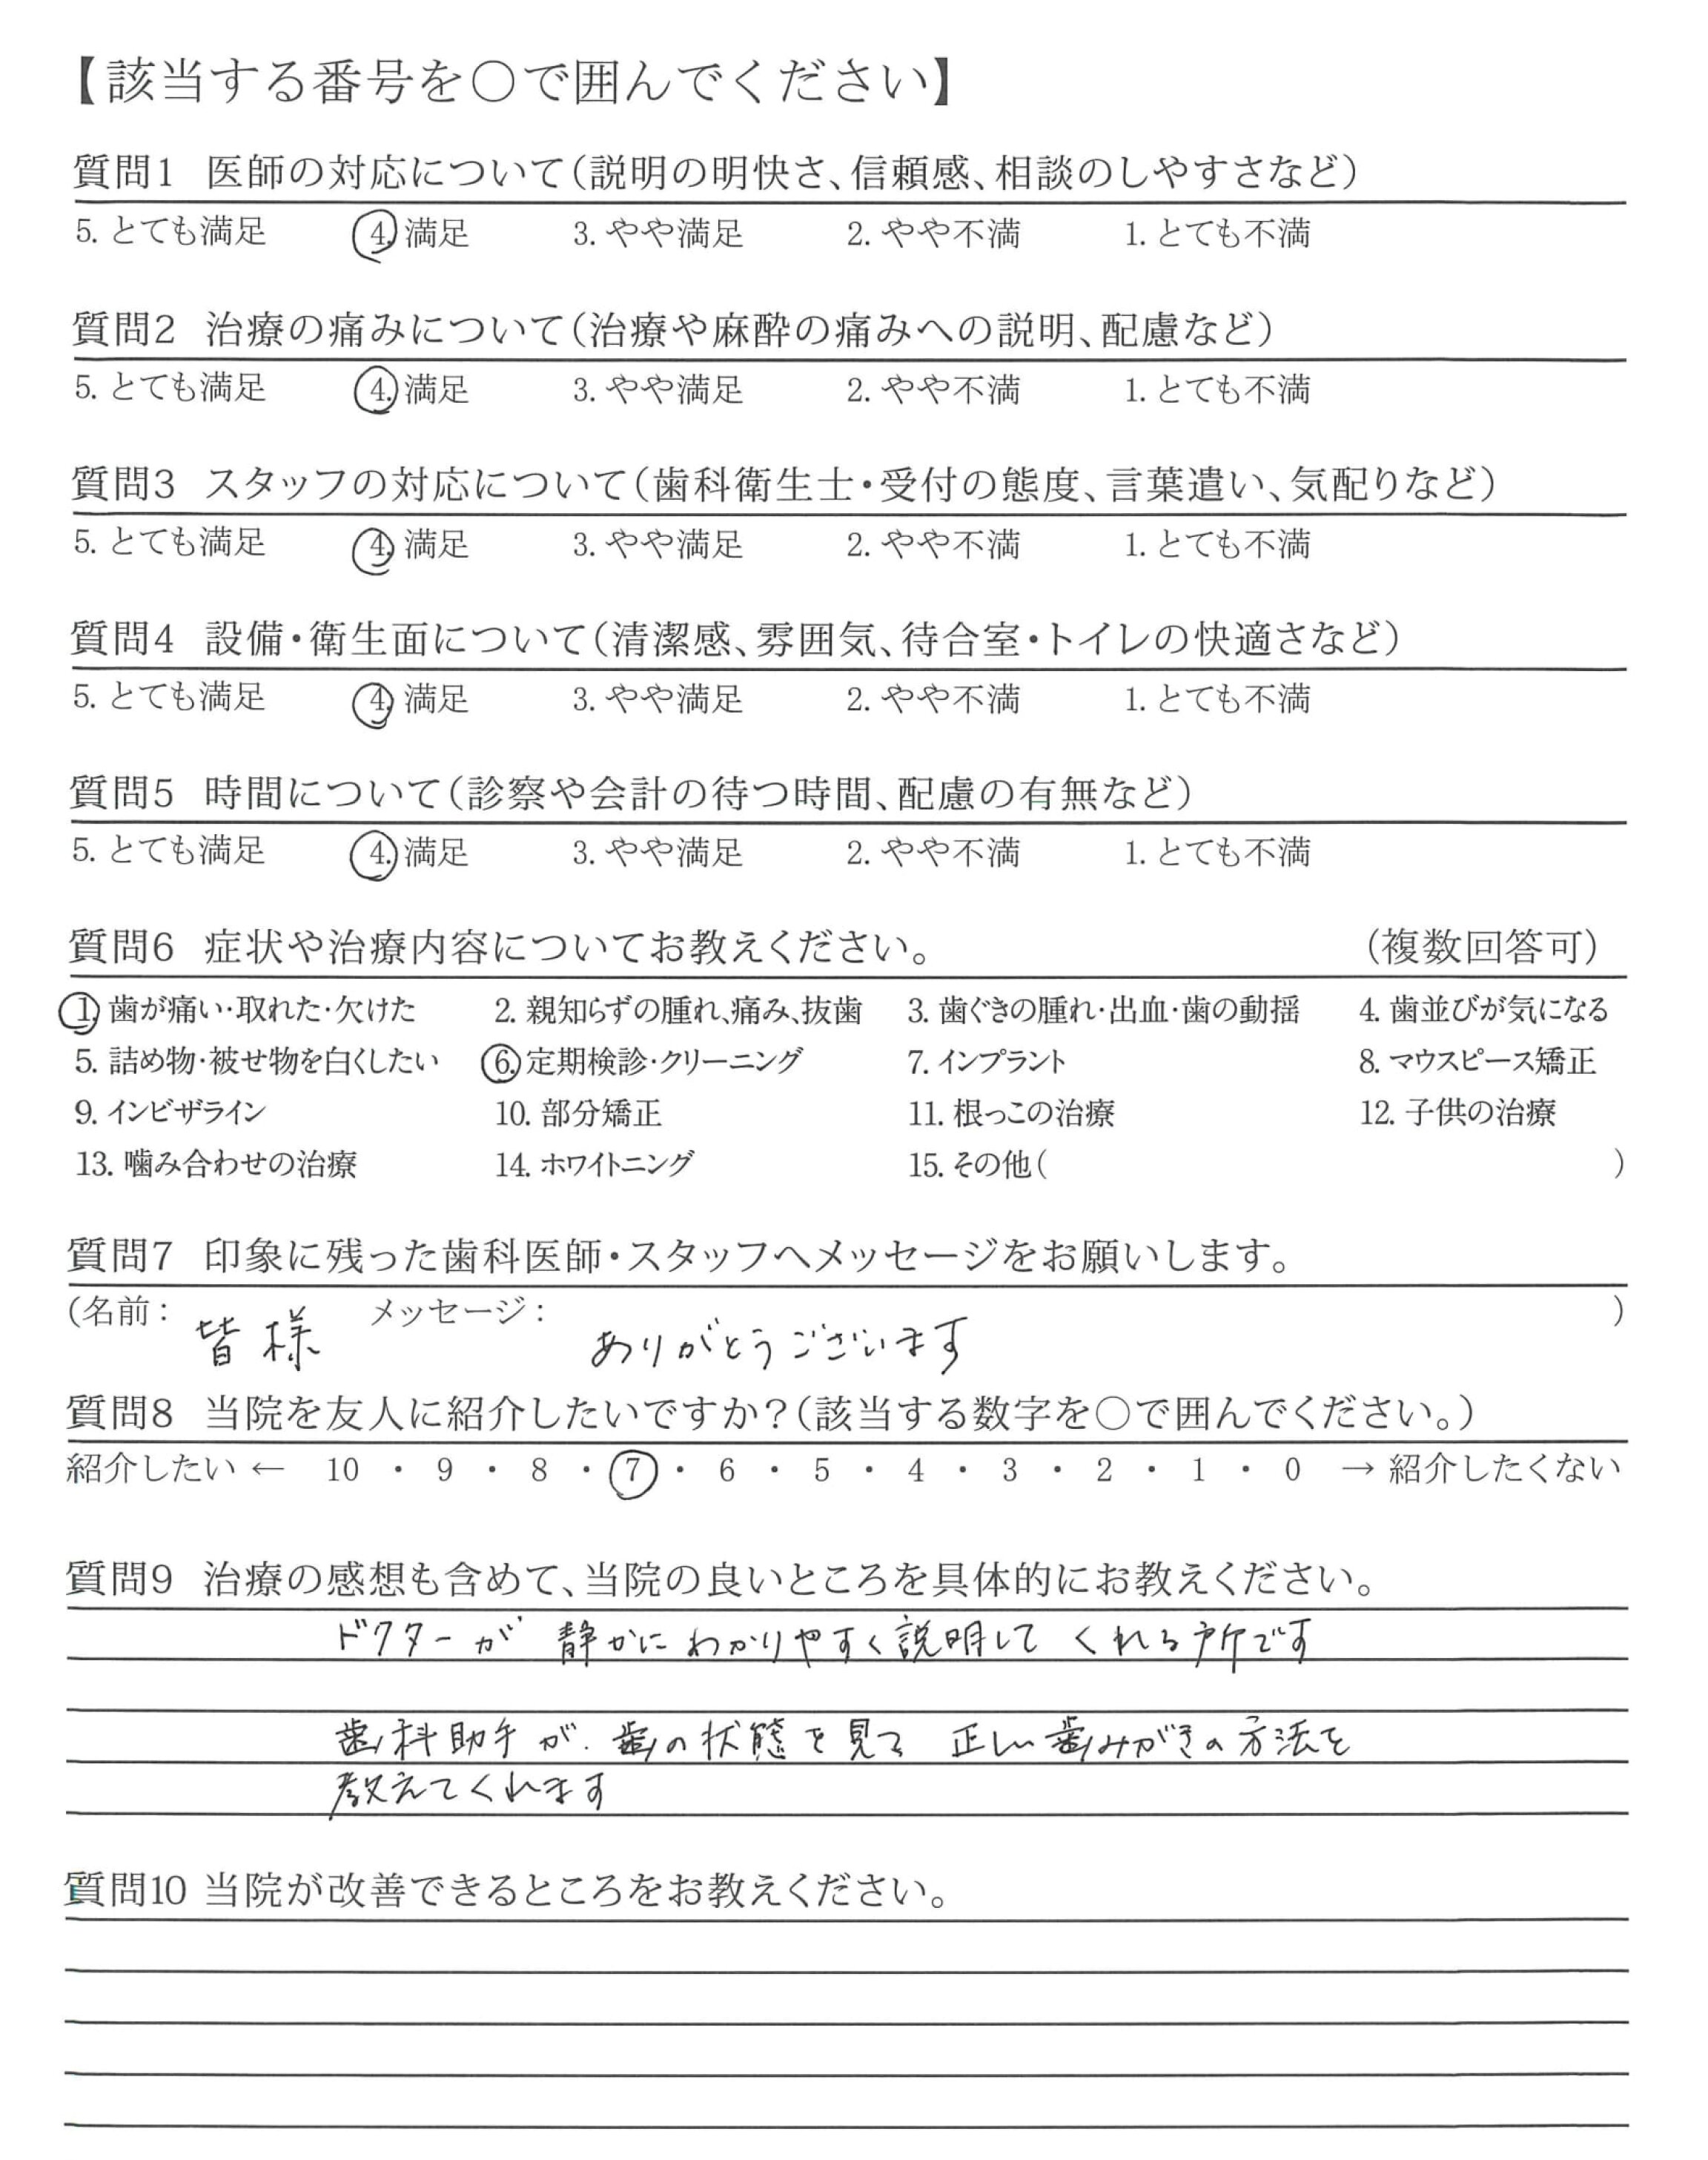 【該当する番号を○で囲んでください】
質問1 医師の対応について(説明の明快さ、信頼感、相談のしやすさなど)
5. とても満足 4. 満足 3. やや満足 2. やや不満 1. とても不満
質問2 治療の痛みについて(治療や麻酔の痛みへの説明、配慮など)
5. とても満足 4. 満足 3. やや満足 2. やや不満 1. とても不満
質問3 スタッフの対応について(歯科衛生士・受付の態度、言葉遣い、気配りなど)
5. とても満足 4. 満足 3. やや満足 2. やや不満 1. とても不満
質問4 設備・衛生面について(清潔感、雰囲気、待合室・トイレの快適さなど)
5. とても満足 4. 満足 3. やや満足 2. やや不満 1. とても不満
質問5 時間について(診察や会計の待つ時間、配慮の有無など)
5. とても満足 4. 満足 3. やや満足 2. やや不満 1. とても不満
質問6 症状や治療内容についてお教えください。 (複数回答可)
1. 歯が痛い・取れた・欠けた 2. 親知らずの腫れ、痛み、抜歯 3. 歯ぐきの腫れ・出血・歯の動揺 4. 歯並びが気になる
5. 詰め物・被せ物を白くしたい 6. 定期検診・クリーニング 7. インプラント 8. マウスピース矯正
9. インビザライン 10. 部分矯正 11. 根っこの治療 12. 子供の治療
13. 噛み合わせの治療 14. ホワイトニング 15. その他( )
質問7 印象に残った歯科医師・スタッフへメッセージをお願いします。
(名前: 皆様 メッセージ: ありがとうございます )
質問8 当院を友人に紹介したいですか?(該当する数字を○で囲んでください。)
紹介したい ← 10 ・ 9 ・ 8 ・ 7 ・ 6 ・ 5 ・ 4 ・ 3 ・ 2 ・ 1 ・ 0 → 紹介したくない
質問9 治療の感想も含めて、当院の良いところを具体的にお教えください。
ドクターが 静かに わかりやすく説明して くれる所です
歯科助手が、歯の状態を見て 正しい歯みがきの方法を
教えてくれます
質問10 当院が改善できるところをお教えください。